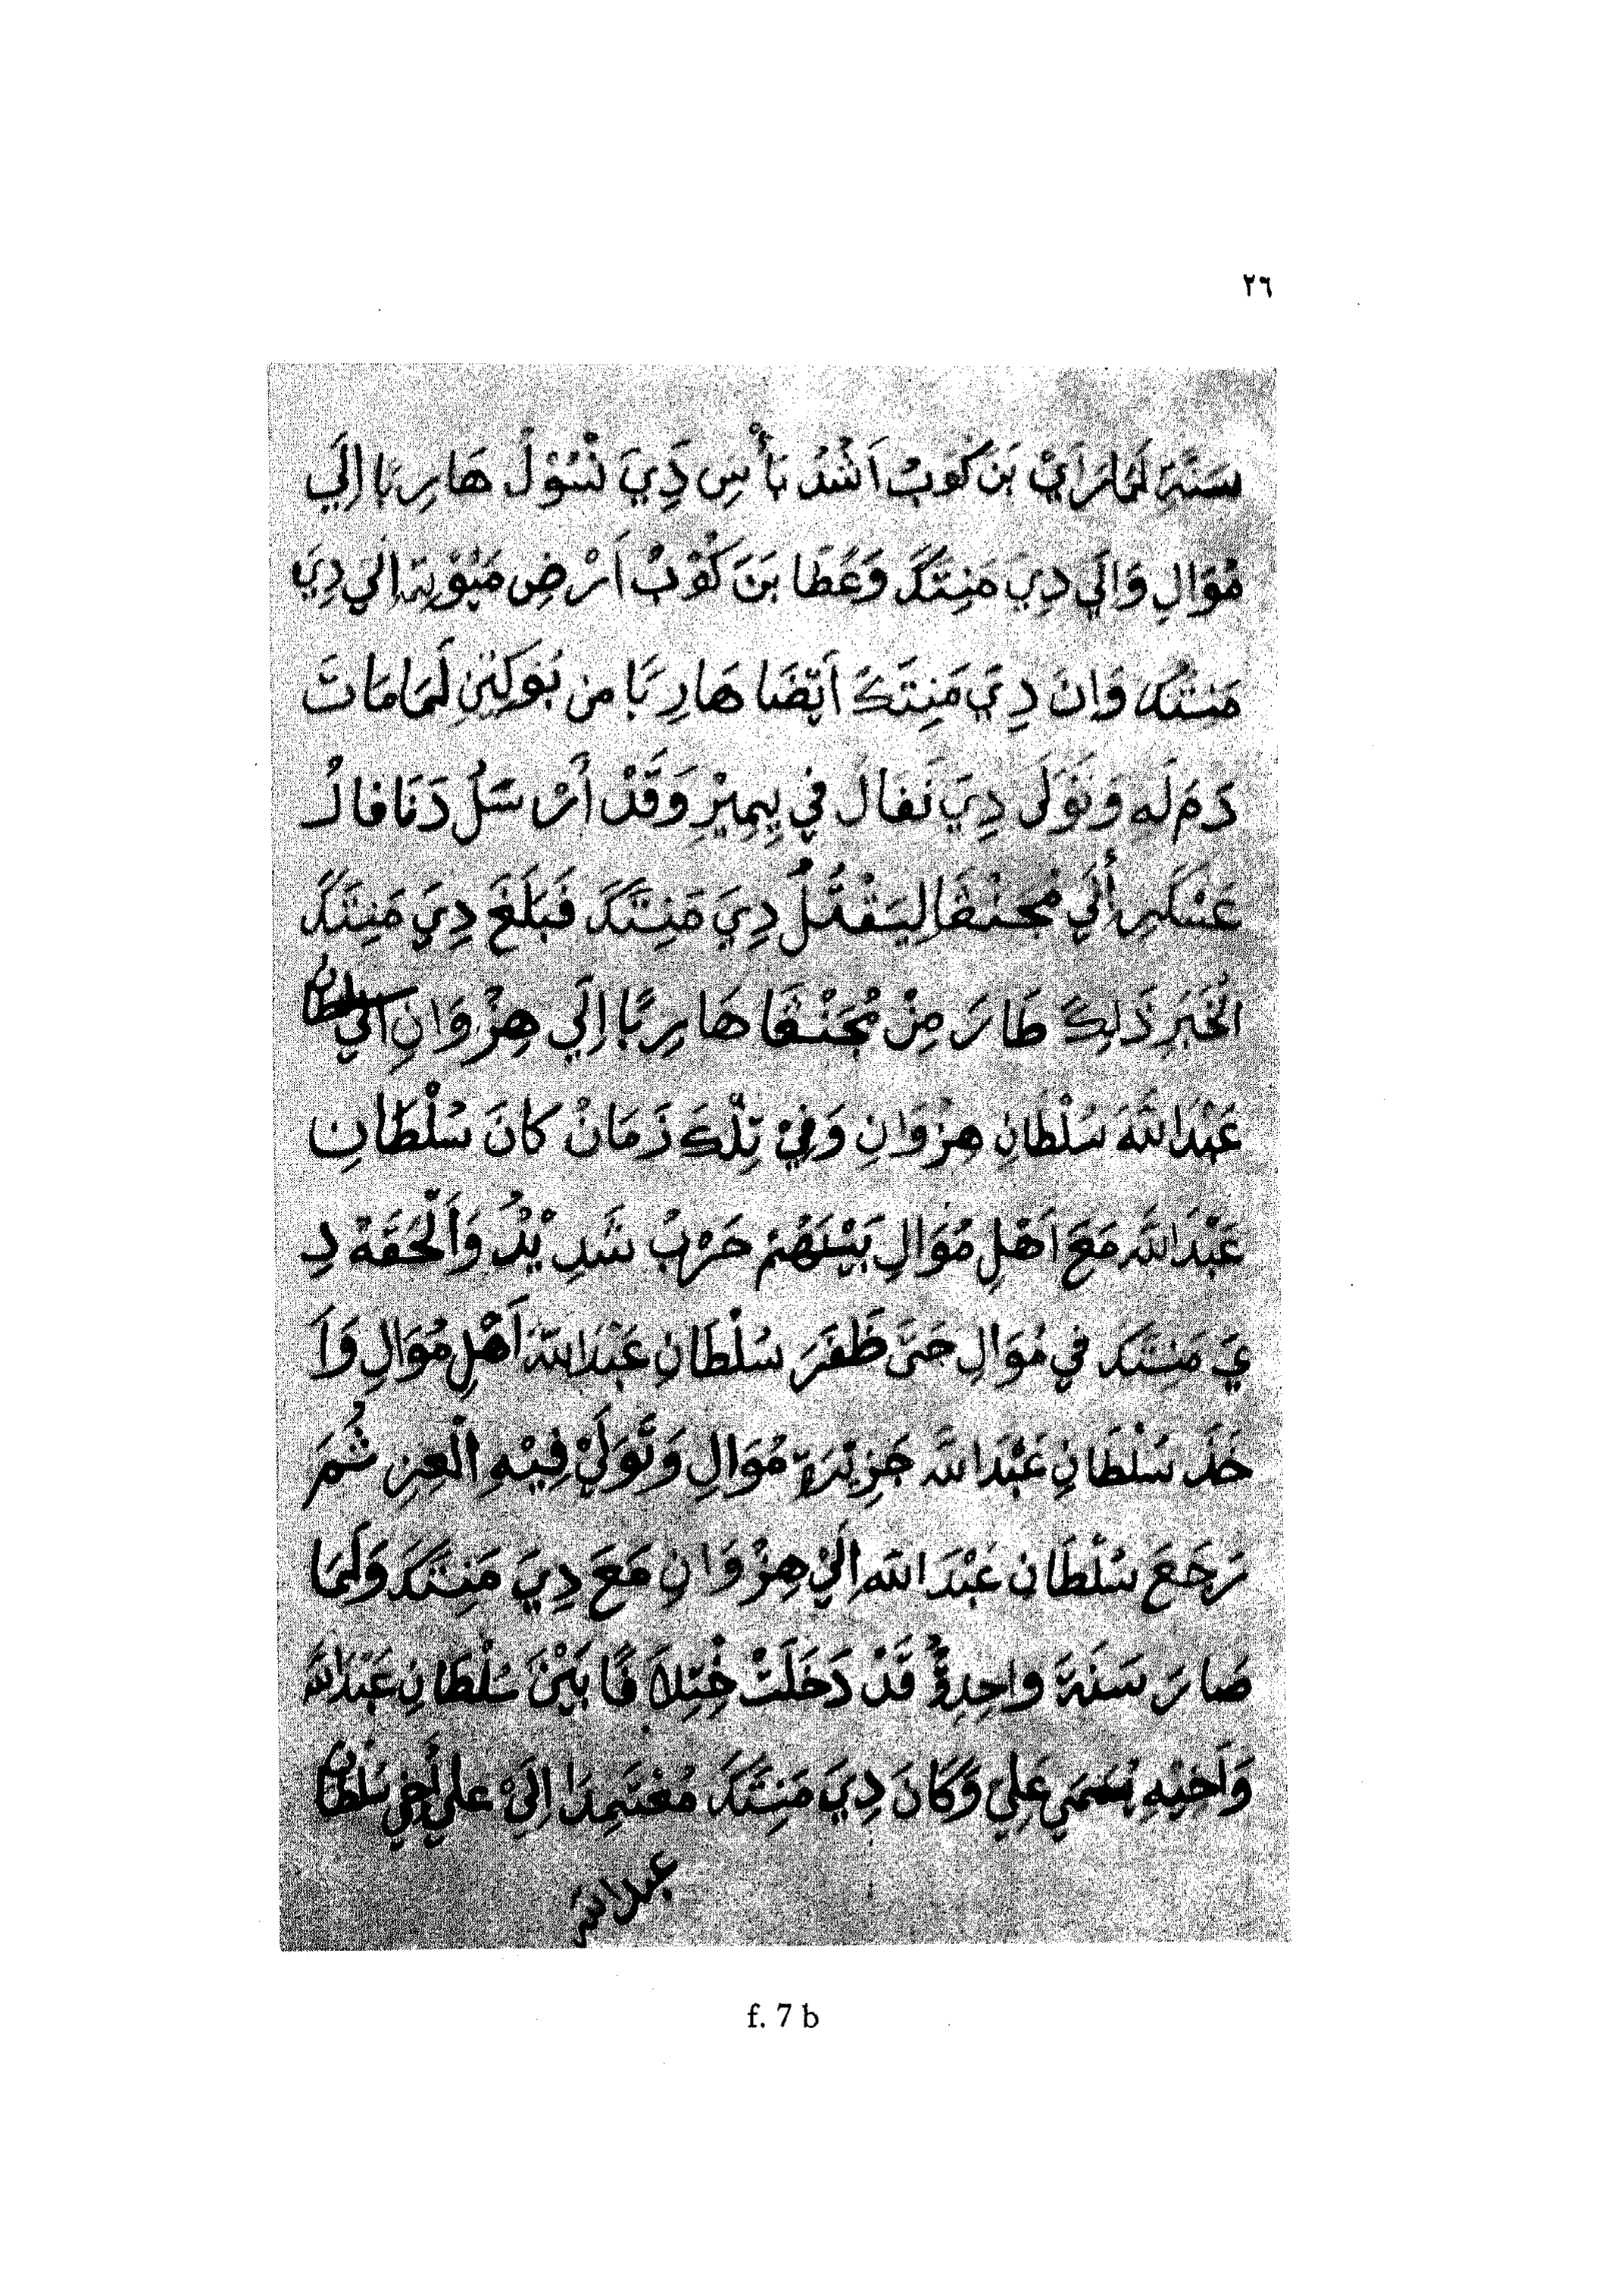 ٢٦
سَنَةِ لَمَّارَاَيْ بَنَ كَوَبُ اَشَدُ بَأْسِ دِيَ نْسُوْلَ هَارِبًا اِلَي
مُوَالِ وَاِلَي دِيَ مَنِتَكَ وَعَطَا بَنَ كُوْبُ اَرْضِ مَيُوْتِهْ اِلَي دِيَ
مَنِتَكَ وَاِنَ دِيَ مَنِتَكَ اَيْضَا هَارِبًا مِن بُوَكِنِيْ لَمَامَاتَ
دَمَ لَهِ وَتَوَلَى دِيَ نَفَالَ فِي يِمِيْزِ وَقَدْ اَرْسَلُ دَنَافَالُ
عَسْكَرِ اُلَي مُجَنْقَا لِيَقْتُلُ دِيَ مَنِتَكَ فَبَلَغَ دِيَ مَنِتَكَ
الْخَبَرِ ذَلِكَ طَارَ مِنْ مُجَنْقَا هَارِبًا اِلَي هِزْوَانِ اَلَي سلطان
عَبْدَاللهَ سُلْطَانِ هِزْوَانِ وَفِيْ تِلْكَ زَمَانْ كَانَ سُلْطَانِ
عَبْدَاللهَ مَعَ اَهْلِ مُوَالِ بَيْنَهُمْ حَرْبُ شَدِيْدُ وَاَلْحَقَهْ دِ
يَ مَنِتَكَ فِي مُوَالِ حَتَى ظَفَرَ سُلْطَانِ عَبْدَاللهَ اَهْلِ مُوَالِ وَاَ
خَذَ سُلْطَانِ عَبْدَاللهَ جَزِيْرَةِ مُوَالِ وَتَوَلَيْ فِيْهِ الْعِزِ ثُمَ
رَجَعَ سُلْطَانِ عَبْدَاللهَ اِلَيْ هِزْوَانِ مَعَ دِيَ مَنِتَكَ وَلَمَا
صَارَ سَنَةَ وَاحِدَةُ قَدْ دَخَلَتْ خِتِلَافًا بَيْنَ سُلْطَانِ عَبْدَاللهَ
وَاَخِيْهِ يُسَمَي عَلِيِ وَكَانَ دِيَ مَنِتَكَ مُعْتَمِدَا اِلَيْ عَلِي اَخِي سُلْطَان
عبدالله
f. 7 b